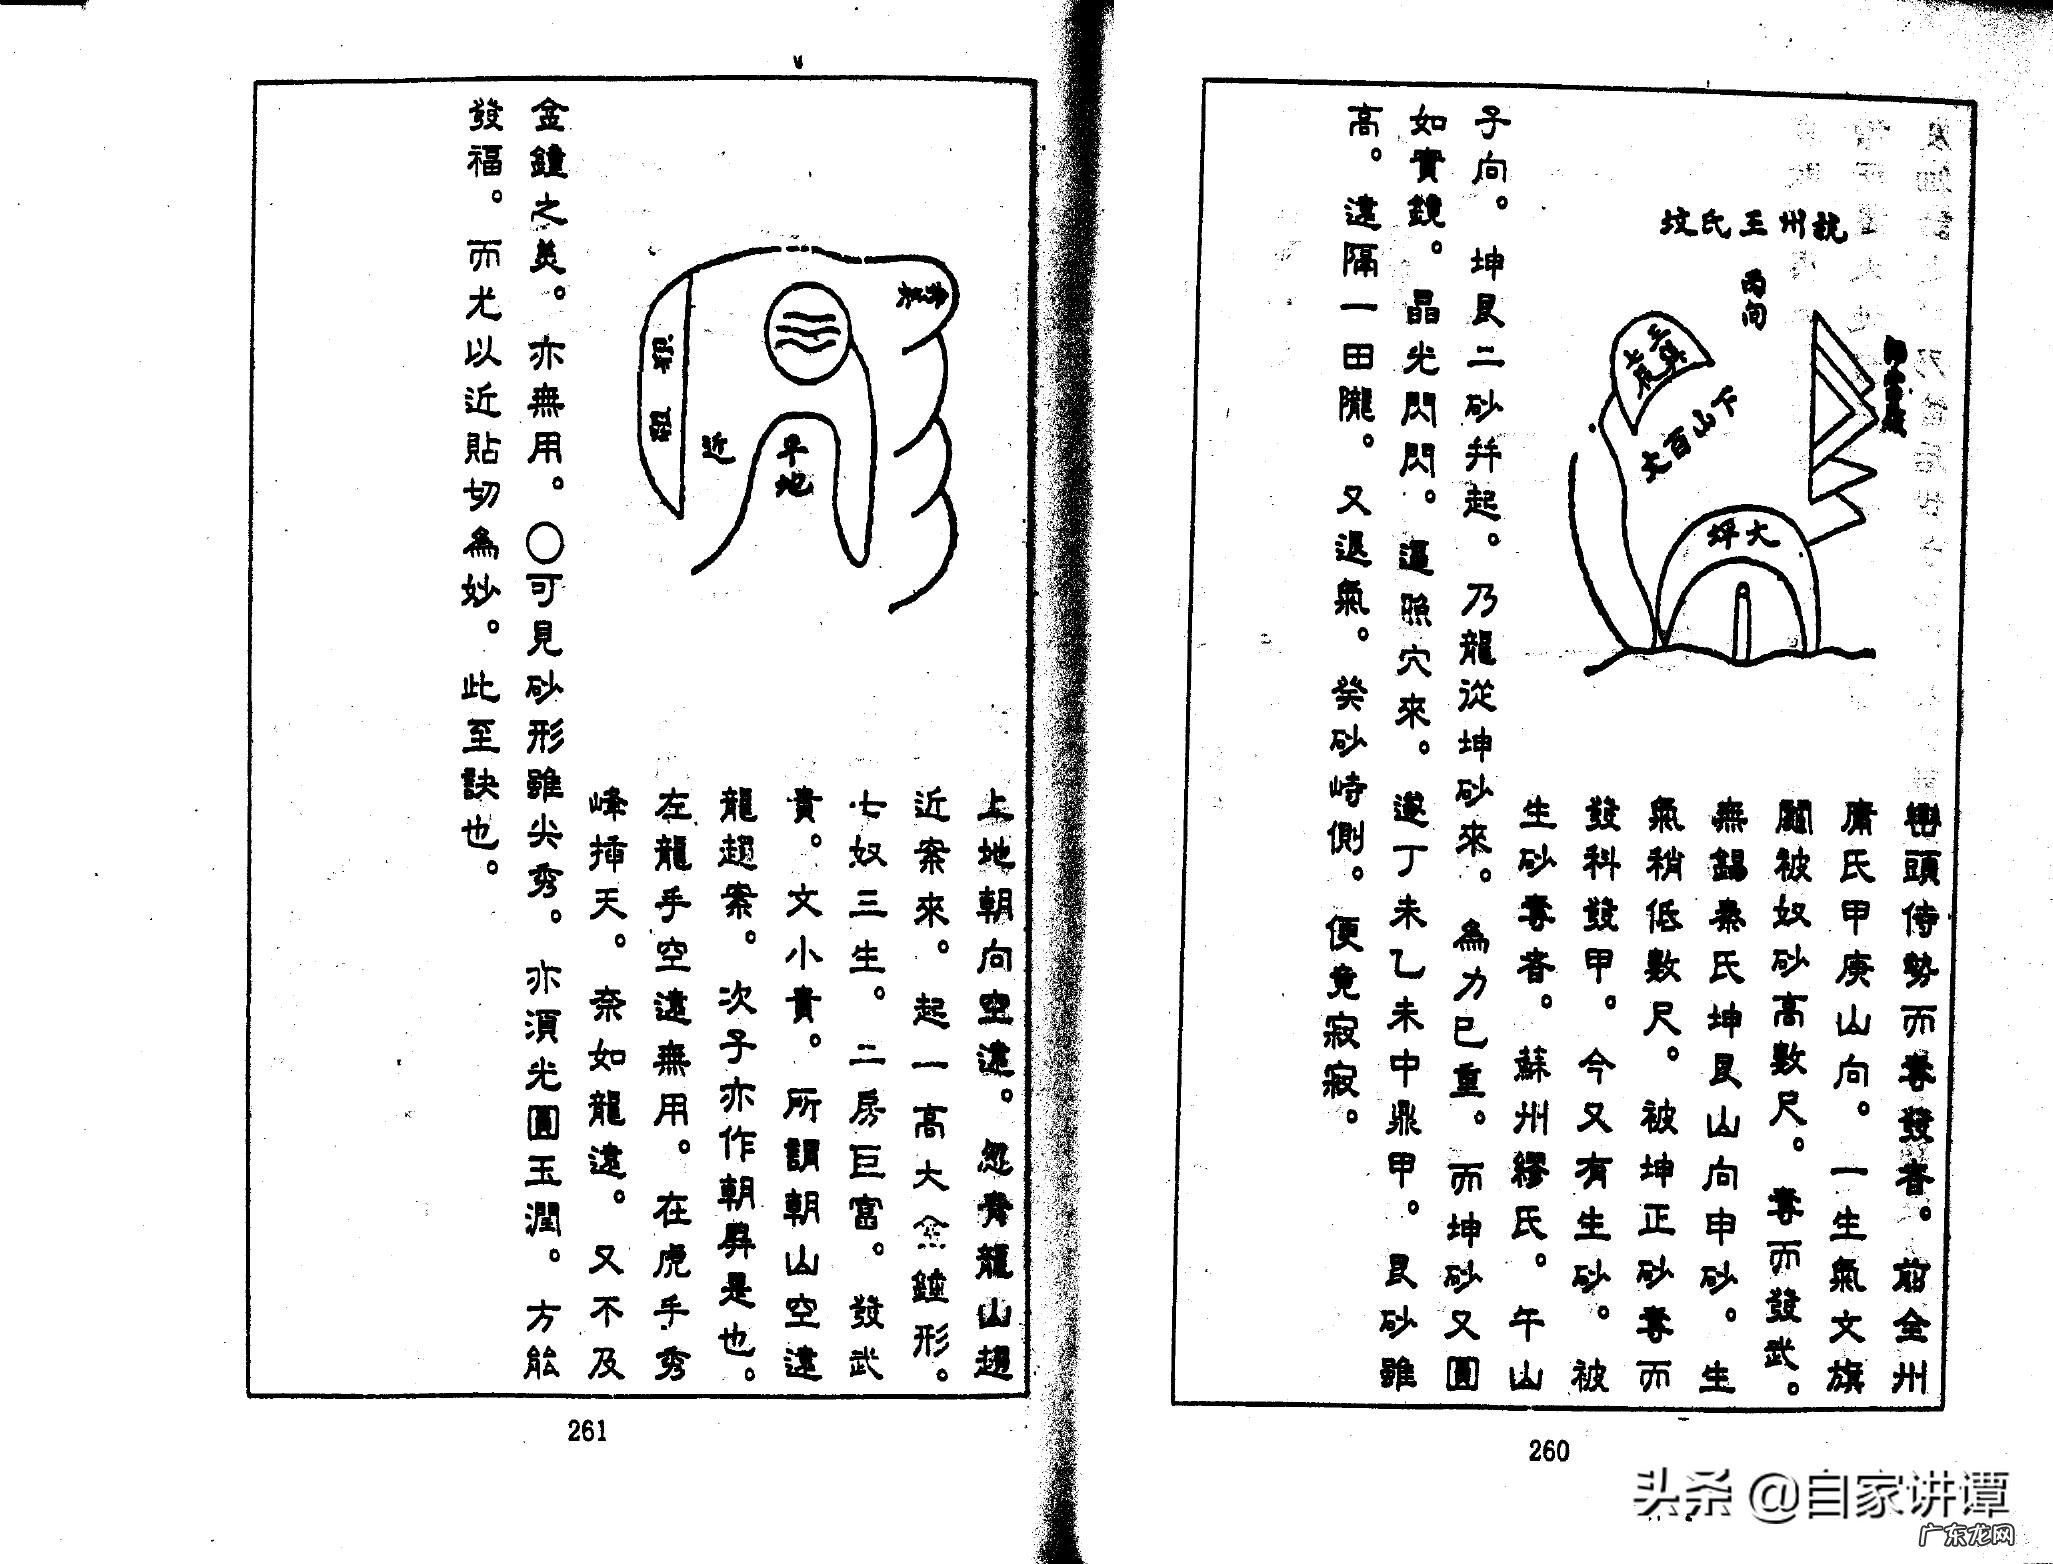 州王氏坟
丙向
下山百丈
大坪
巒頭侍勢而奪發者。前全州
庸氏甲庚山向。一生氣文旗
闊被奴砂高數尺。奪而發武。
無錫秦氏坤艮山向申砂。生
氣稍低數尺。被坤正砂奪而
發科發甲。今又有生砂。被
生砂奪者。蘇州繆氏。午山
子向。坤艮二砂并起。乃龍從坤砂來。為力已重。而坤砂又圓
如寶鏡。晶光閃閃。逼照穴來。遂丁未乙未中鼎甲。艮砂雖
高。遠隔一田隴。又退氣。癸砂峙側。便竟寂寂。
260
近
平地
上地朝向空遠。忽青龍山趨
近案來。起一高大金鐘形。
七奴三生。二房巨富。發武
貴。文小貴。所謂朝山空遠
龍趨案。次子亦作朝羣是也。
左龍手空遠無用。在虎手秀
峰插天。奈如龍遠。又不及
金鐘之美。亦無用。〇可見砂形雖尖秀。亦須光圓玉潤。方能
發福。而尤以近貼切為妙。此至訣也。
261
头条 @自家讲谭
广东龙网